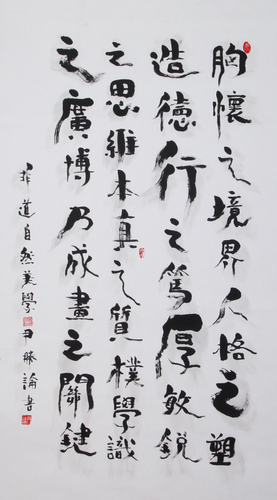 胸懷之境界人格之塑
造德行之篤厚敏銳
之思維本真之質樸學識
之廣博乃成畫之關鍵
非道自然美學尹勝論書